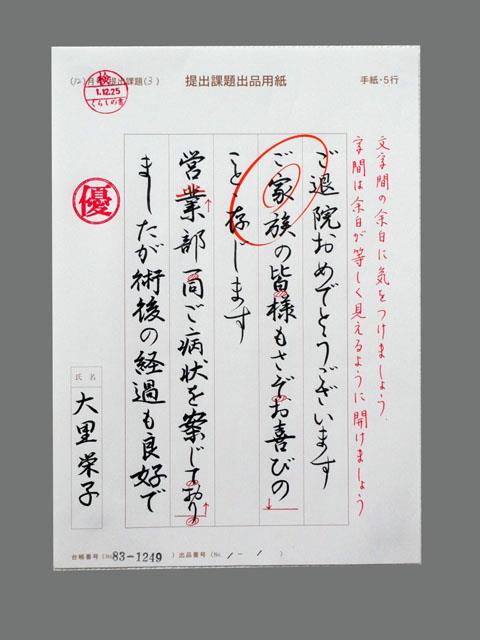 (12)月 提出課題(3)
提出課題出品用紙
手紙・5行
検
1.12.25
くらしの書
文字間の余白に気をつけましょう。
字間は余白が等しく見えるように開けましょう
ご退院おめでとうございます
ご家族の皆様もさぞお喜びの
こと存じます
営業部一同ご病状を案じており
ましたが術後の経過も良好で
優
氏名
大里栄子
台帳番号(No.83-1249)出品番号(No.1-1)